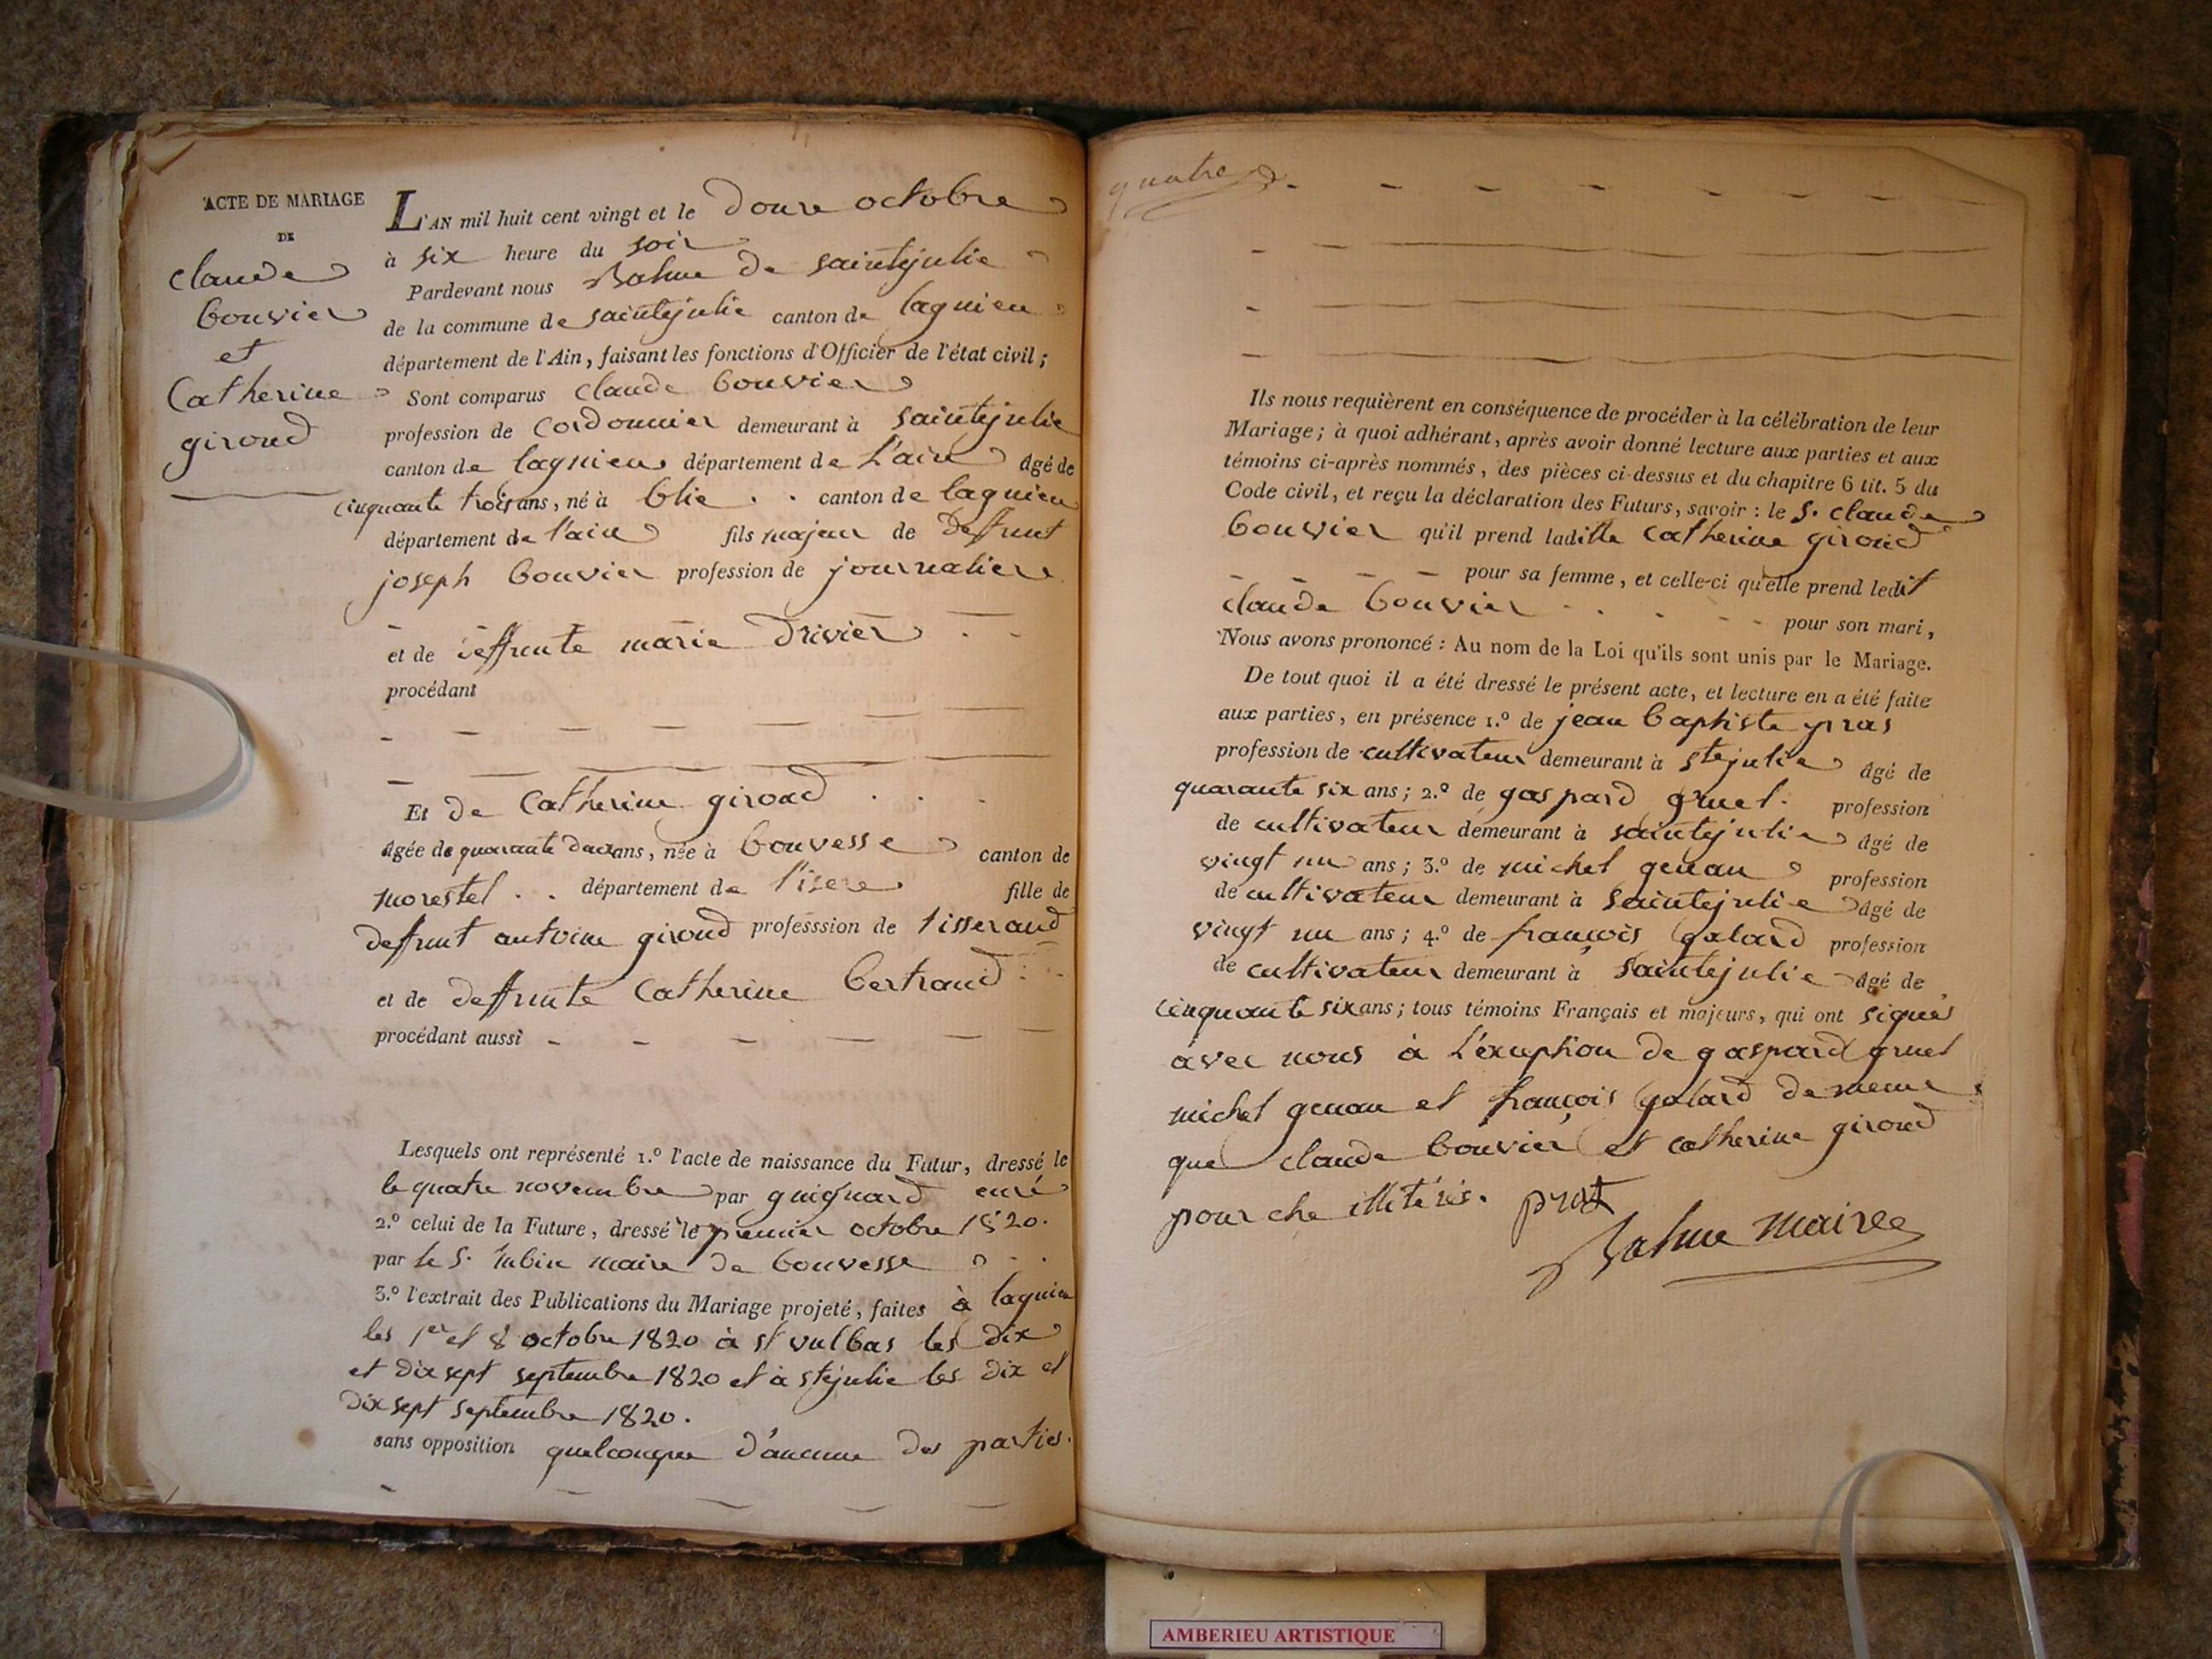 ACTE DE MARIAGE
DE
Claude
bouvier
et
Catherine
giroud
L'AN mil huit cent vingt et le douze octobre
à six heure du soir
Pardevant nous de saintejulie
de la commune de saintejulie canton de lagnieu
département de l'Ain, faisant les fonctions d'Officier de l'état civil;
Sont comparus claude bouvier
profession de cordonnier demeurant à saintejulie
canton de lagnieu département de L'ain âgé de
cinquante trois ans, né à blie . . canton de lagnieu
département de l'ain fils majeur de deffunt
joseph bouvier profession de journalier
et de deffunte marie drivier
procédant
Et de Catherine giroud . . .
âgée de quarante deux ans, née à bouvesse canton de
morestel . . département de l'isere fille de
deffunt antoine giroud professsion de tisserand
et de deffunte Catherine bertrand
procédant aussi
Lesquels ont représenté 1.º l'acte de naissance du Futur, dressé le
le quatre novembre par guignard curé
2.º celui de la Future, dressé le premier octobre 1820.
par le S. maire de bouvesse
3.º l'extrait des Publications du Mariage projeté, faites à lagnieu
les 1er et 8 octobre 1820 à st vulbas les dix
et dix sept septembre 1820 et à ste julie les dix et
dix sept septembre 1820.
sans opposition quelconque d'aucune des parties.
quatre
Ils nous requièrent en conséquence de procéder à la célébration de leur
Mariage; à quoi adhérant, après avoir donné lecture aux parties et aux
témoins ci-après nommés, des pièces ci-dessus et du chapitre 6 tit. 5 du
Code civil, et reçu la déclaration des Futurs, savoir : le S. claude
bouvier qu'il prend laditte catherine giroud
pour sa femme, et celle-ci qu'elle prend ledit
claude bouvier pour son mari,
Nous avons prononcé : Au nom de la Loi qu'ils sont unis par le Mariage.
De tout quoi il a été dressé le présent acte, et lecture en a été faite
aux parties, en présence 1.º de jean baptiste pras
profession de cultivateur demeurant à ste julie âgé de
quarante six ans; 2.º de gaspard gruel. profession
de cultivateur demeurant à saintejulie âgé de
vingt un ans; 3.º de michel genau profession
de cultivateur demeurant à saintejulie âgé de
vingt un ans; 4.º de françois galard profession
de cultivateur demeurant à saintejulie âgé de
cinquante six ans; tous témoins Français et majeurs, qui ont signés
avec nous à L'exception de gaspard gruel
michel genau et françois galard de meme
que claude bouvier et catherine giroud
pour illitérés.
maire
AMBERIEU ARTISTIQUE